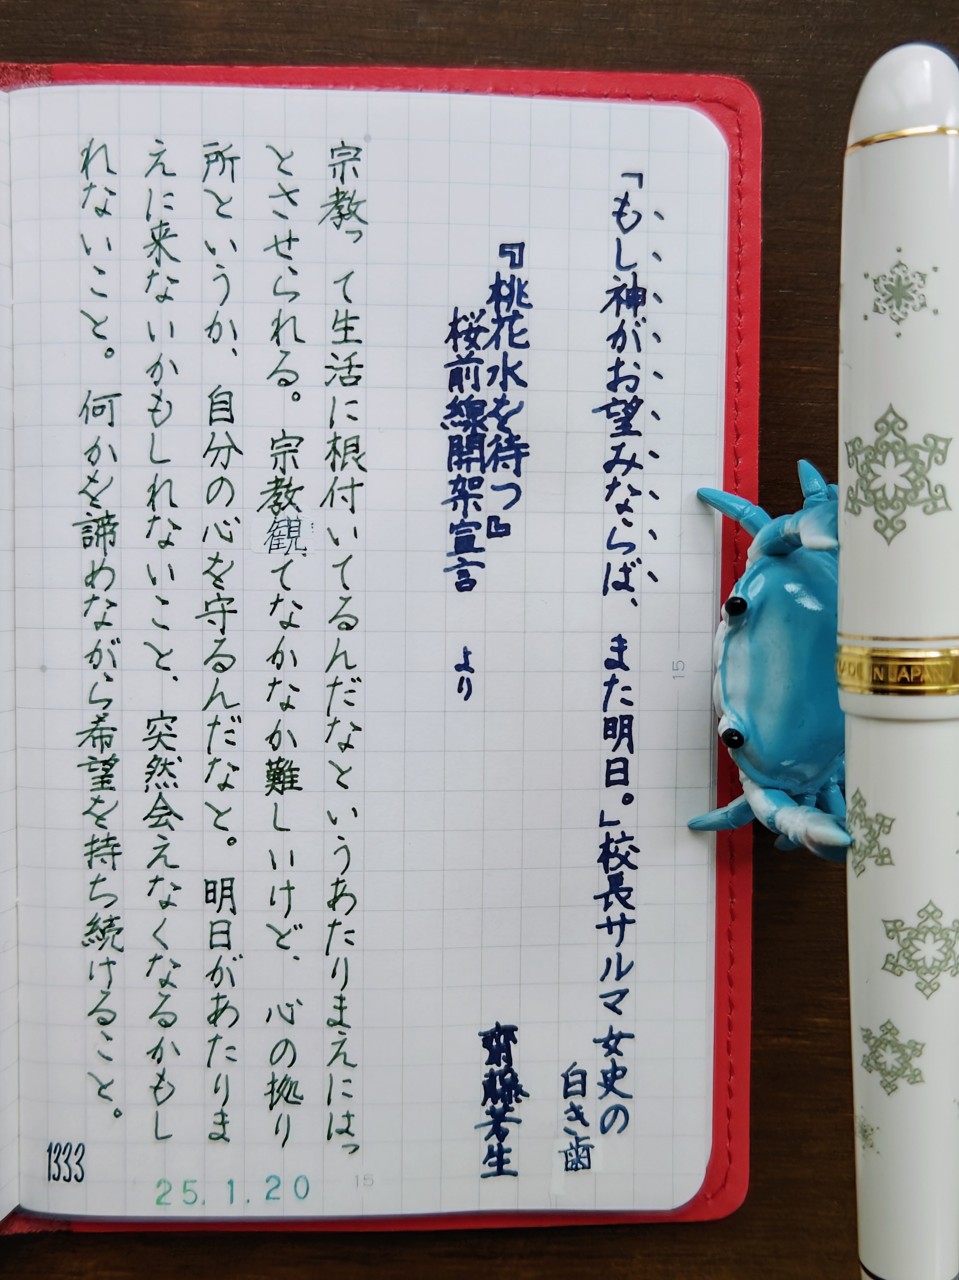 「もし神がお望みならば、また明日。」校長サルマ女史の
白き歯
『桃花水を待つ』
桜前線開架宣言 より
齋藤芳生
宗教って生活に根付いてるんだなというあたりまえにはっ
とさせられる。宗教観てなかなか難しいけど、心の拠り
所というか、自分の心を守るんだなと。明日があたりま
えに来ないかもしれないこと、突然会えなくなるかもし
れないこと。何かを諦めながら希望を持ち続けること。
1333
25.1.20
15
15
MADE IN JAPAN